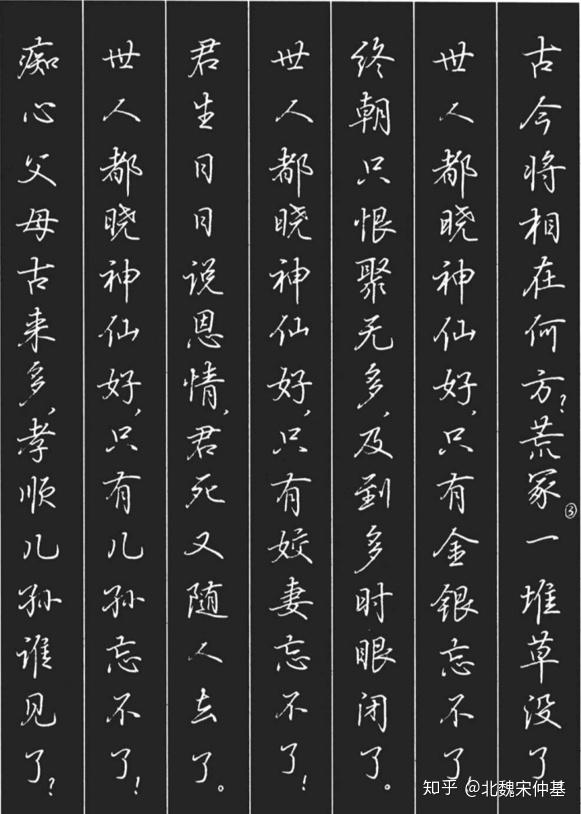 古今将相在何方?荒冢③一堆草没了
世人都晓神仙好,只有金银忘不了!
终朝只恨聚无多,及到多时眼闭了。
世人都晓神仙好,只有姣妻忘不了!
君生日日说恩情,君死又随人去了。
世人都晓神仙好,只有儿孙忘不了!
痴心父母古来多,孝顺儿孙谁见了?
知乎 @北魏宋仲基